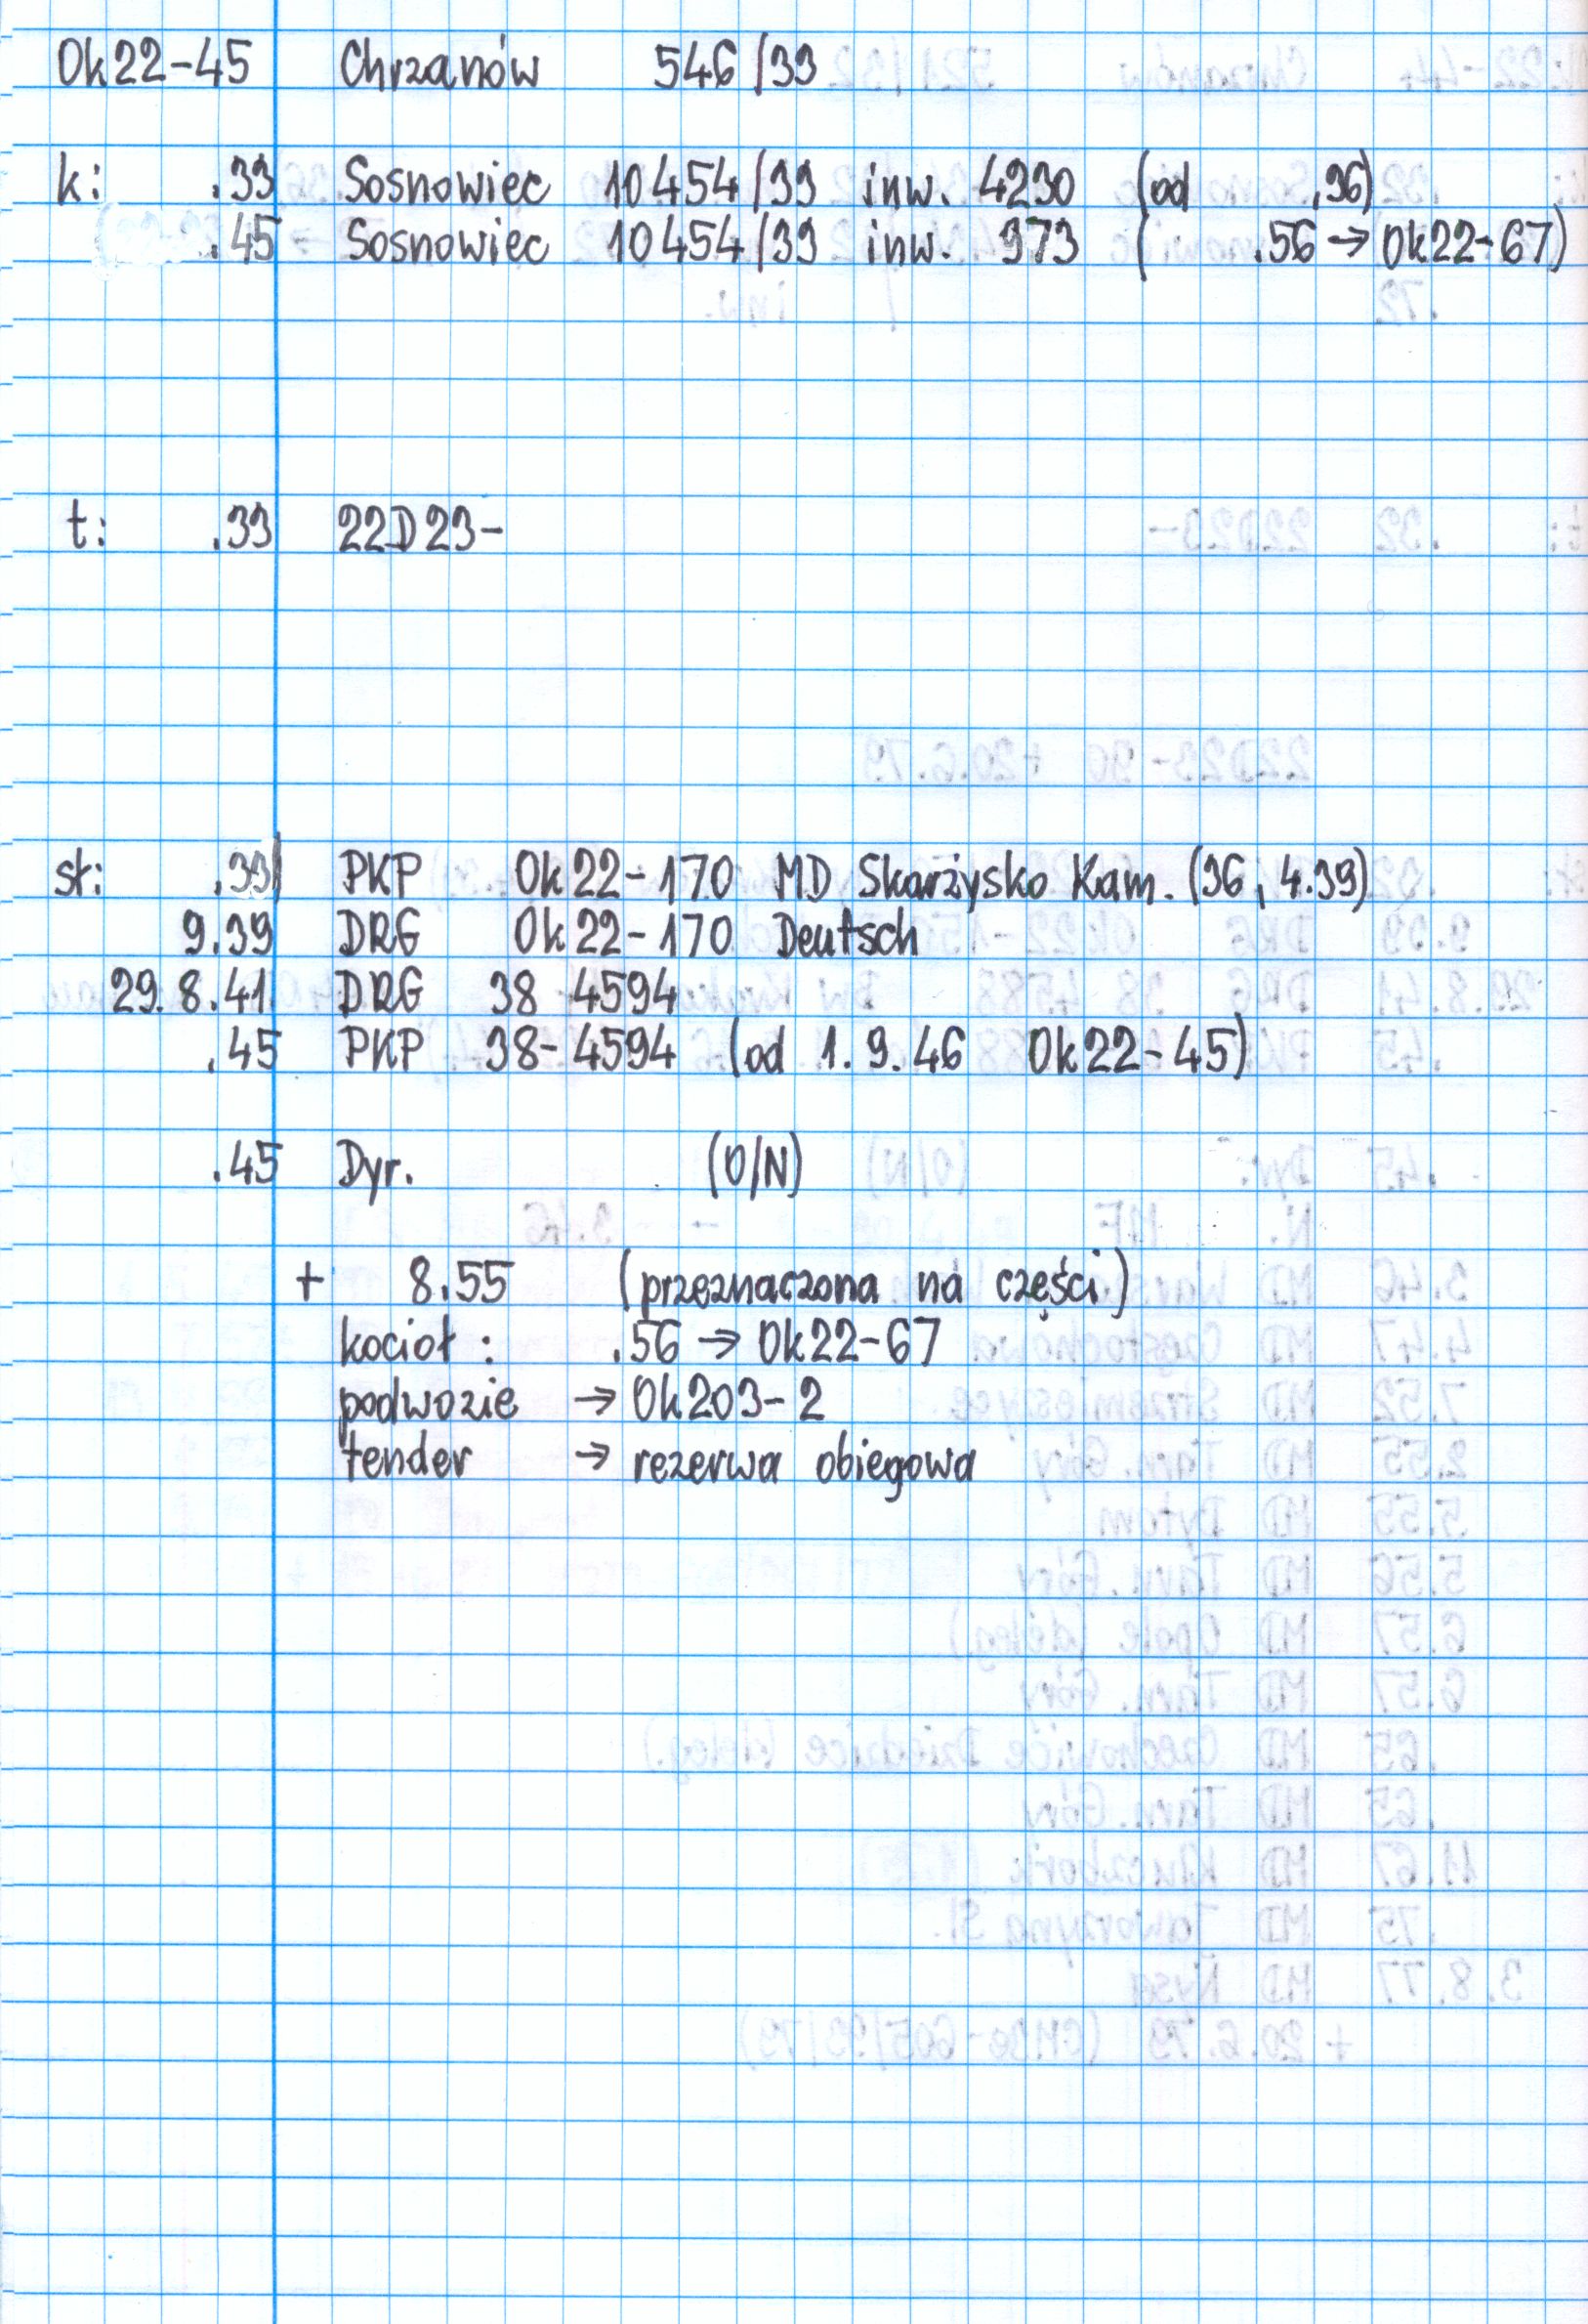 Ok22-45 Chrzanów 546/33
k: .33 Sosnowiec 10454/33 inw. 4230 (od .36)
.45 Sosnowiec 10454/33 inw. 973 ( .56 → Ok22-67)
t: .33 22D23-
sł: .33 PKP Ok22-170 MD Skarżysko Kam. (36, 4.39)
9.39 DRG Ok22-170 Deutsch
29.8.41 DRG 38 4594
.45 PKP 38-4594 (od 1.9.46 Ok22-45)
.45 Dyr. (O/N)
+ 8.55 (przeznaczona na części)
kocioł: .56 → Ok22-67
podwozie → Ok203-2
tender → rezerwa obiegowa